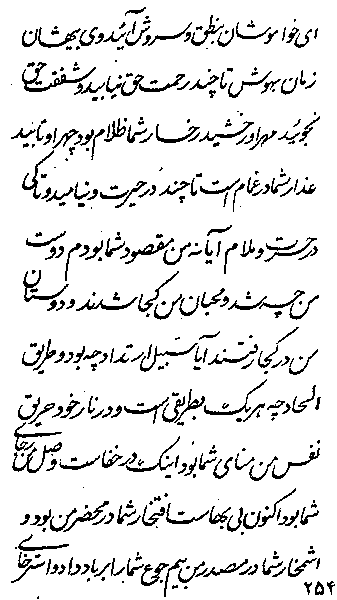 ای خواموشان بنطق و سروش آئید وی بیهشان
زمان بهوش تا چند رحمت حق نیابید و شفقت حق
نجوئید مهر اور خشید رخسار شما ظلام بود چهر او تابید
عذار شما در غمام است تا چند در حیرت و نیامید و تا کی
در حسرت و ملام آیا نه من مقصود شما بودم دوست
من چه شد و محبان من کجا شدند و دوستان
من در کجا رفتند آیا سبیل ارتداد چه بود و طریق
الحاد چه هر یک بطریقی است و در نار خود حریق
نفس من منای شما بود اینک در خفاست وصل من رجای
شما بود اکنون بی بهاست افتخار شما در محضر من بود و
اشمخار شما در مصدر من بیم جوع شما را بر باد داد و استرخای
۲۵۴